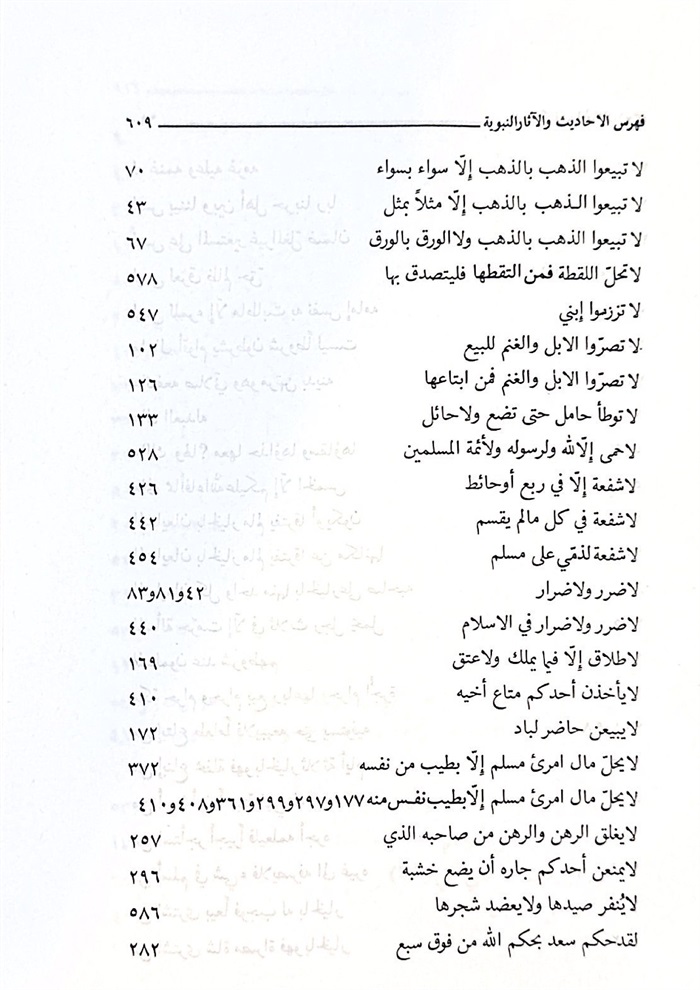 فهرس الاحاديث والآثارالنبوية ٦٠٩
لا تبيعوا الذهب بالذهب إلّا سواء بسواء ٧٠
لا تبيعوا الذهب بالذهب إلّا مثلاً بمثل ٤٣
لا تبيعوا الذهب بالذهب ولا الورق بالورق ٦٧
لا تحلّ اللقطة فمن التقطها فليتصدق بها ٥٧٨
لا تزرموا إبني ٥٤٧
لا تصرّوا الابل والغنم للبيع ١٠٢
لا تصرّوا الابل والغنم فمن ابتاعها ١٢٦
لا توطأ حامل حتى تضع ولاحائل ١٣٣
لاحمى إلّالله ولرسوله ولأئمة المسلمين ٥٢٨
لاشفعة إلّا في ربع أوحائط ٤٢٦
لاشفعة في كل مالم يقسم ٤٤٢
لاشفعة لذمّي على مسلم ٤٥٤
لاضرر ولاضرار ٤٢و٨١و٨٣
لاضرر ولاضرار في الاسلام ٤٤٠
لاطلاق إلّا فيما يملك ولاعتق ١٦٩
لايأخذن أحدكم متاع أخيه ٤١٠
لايبيعن حاضر لباد ١٧٢
لايحلّ مال امرئ مسلم إلّا بطيب من نفسه ٣٧٢
لايحلّ مال امرئ مسلم إلّابطيب نفس منه ١٧٧و٢٩٧و٢٩٩و٣٦١و٤٠٨و٤١٠
لايغلق الرهن والرهن من صاحبه الذي ٢٥٧
لايمنعن أحدكم جاره أن يضع خشبة ٢٩٦
لايُنفر صيدها ولايعضد شجرها ٥٨٦
لقدحكم سعد بحكم الله من فوق سبع ٢٨٢